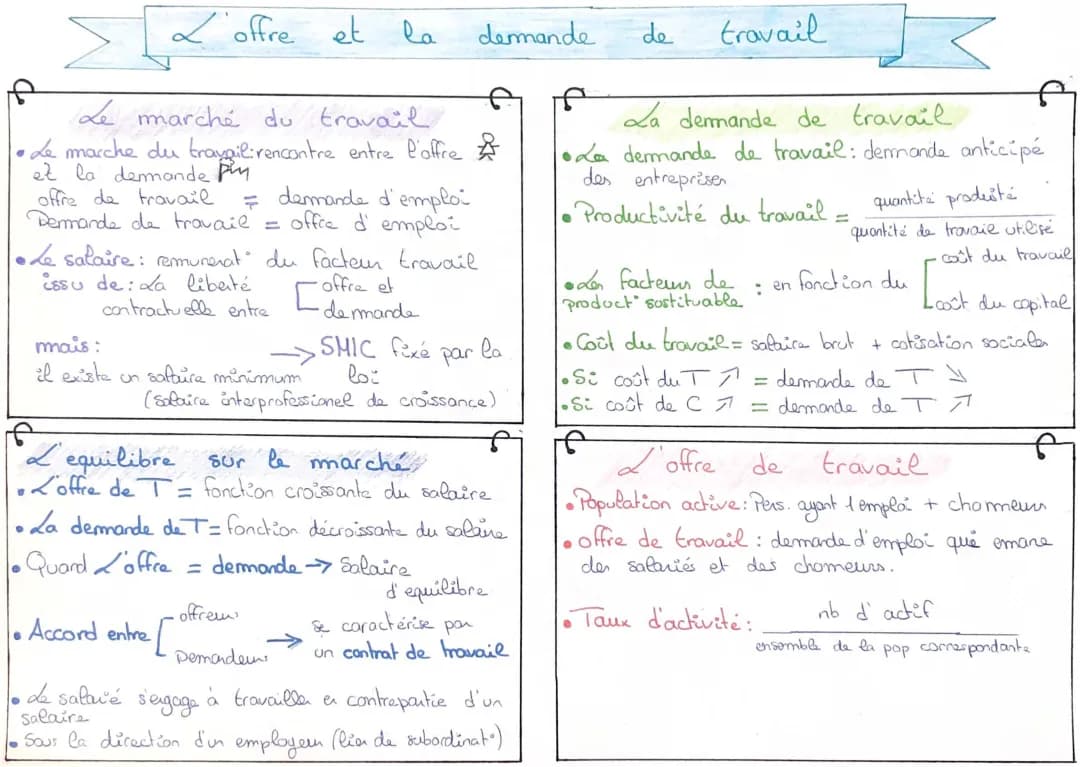 L'offre et la demande de travail
Le marché du travail
• Le marche du travail: rencontre entre l'offre
et la demande
offre de travail = demande d'emploi
Demande de travail = offre d'emploi
• Le salaire: remunerat° du facteur travail
issu de: La liberté
contractuelle entre
offre et
demande
mais:
il existe un salaire minimum
→ SMIC fixé par la
loi
(salaire interprofessionel de croissance)
La demande de travail
• La demande de travail: demande anticipé
des entreprises
• Productivité du travail = quantité produité
quantité de travaie utilisé
• Les facteurs de
product° sustituable : en fonction du
coût du travail
coût du capital
• Coût du travail = salaire brut + cotisation sociales
• Si coût du T ↗ = demande de T ↘
• Si coût de C ↗ = demande de T ↗
L'equilibre sur le marché
• L'offre de T = fonction croissante du salaire
• La demande de T = fonction décroissante du salaire
• Quand L'offre = demande → Salaire
d'equilibre
• Accord entre
offreurs
Demandeurs
→ se caractérise par
un contrat de travail
• Le salarié s'engage à travailler en contrepartie d'un
salaire
• Sous la direction d'un employeur (lien de subordinat°)
L'offre de travail
• Population active: Pers. ayant 1 emploi + chomeurs
• offre de travail : demande d'emploi qui emane
des salariés et des chomeurs.
• Taux d'activité: nb d'actif
ensemble de la pop correspondante